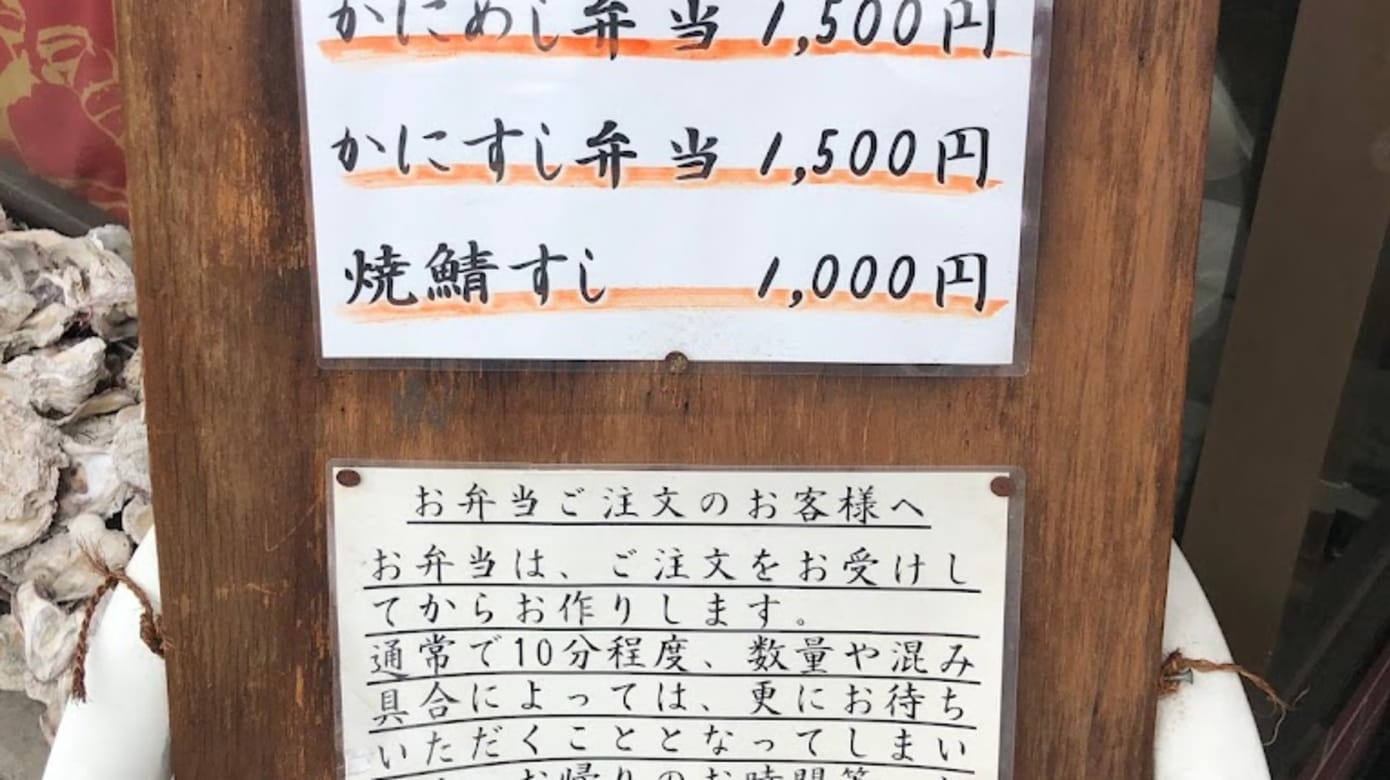 かにめし弁当 1,500円
かにすし弁当 1,500円
焼鯖すし 1,000円
お弁当ご注文のお客様へ
お弁当は、ご注文をお受けし
てからお作りします。
通常で10分程度、数量や混み
具合によっては、更にお待ち
いただくこととなってしまい
お帰りのお時間等